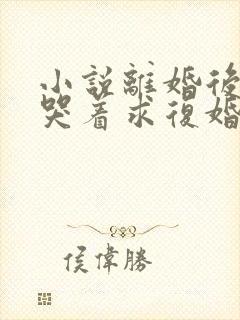 小說離婚後
哭着求復婚
侯偉勝